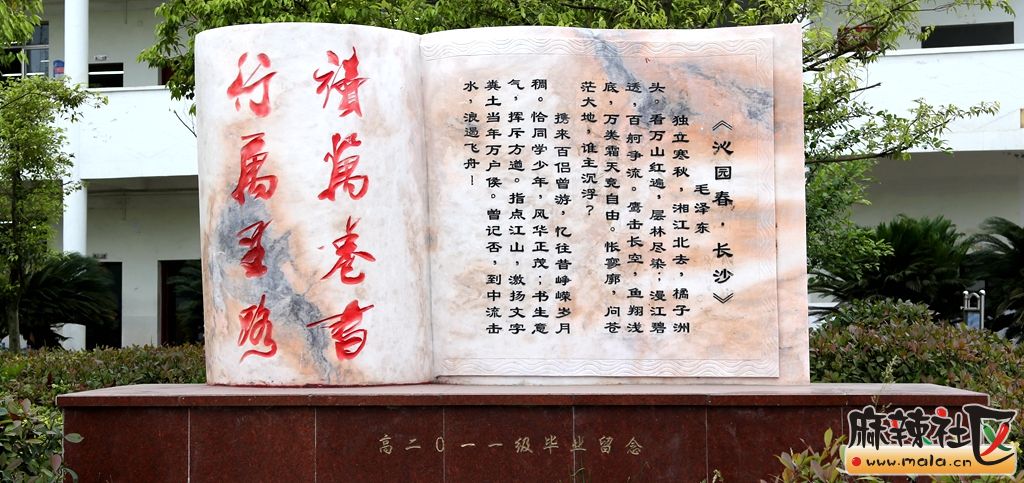 《沁园春，长沙》
毛泽东
独立寒秋，湘江北去，橘子洲
头。看万山红遍，层林尽染；漫江碧
透，百舸争流。鹰击长空，鱼翔浅
底，万类霜天竞自由。怅寥廓，问苍
茫大地，谁主沉浮？
携来百侣曾游，忆往昔峥嵘岁月
稠。恰同学少年，风华正茂；书生意
气，挥斥方遒。指点江山，激扬文字
粪土当年万户侯。曾记否，到中流击
水，浪遏飞舟！
讀萬卷書
行萬里路
高二〇一一级毕业留念
麻辣社区
www.mala.cn